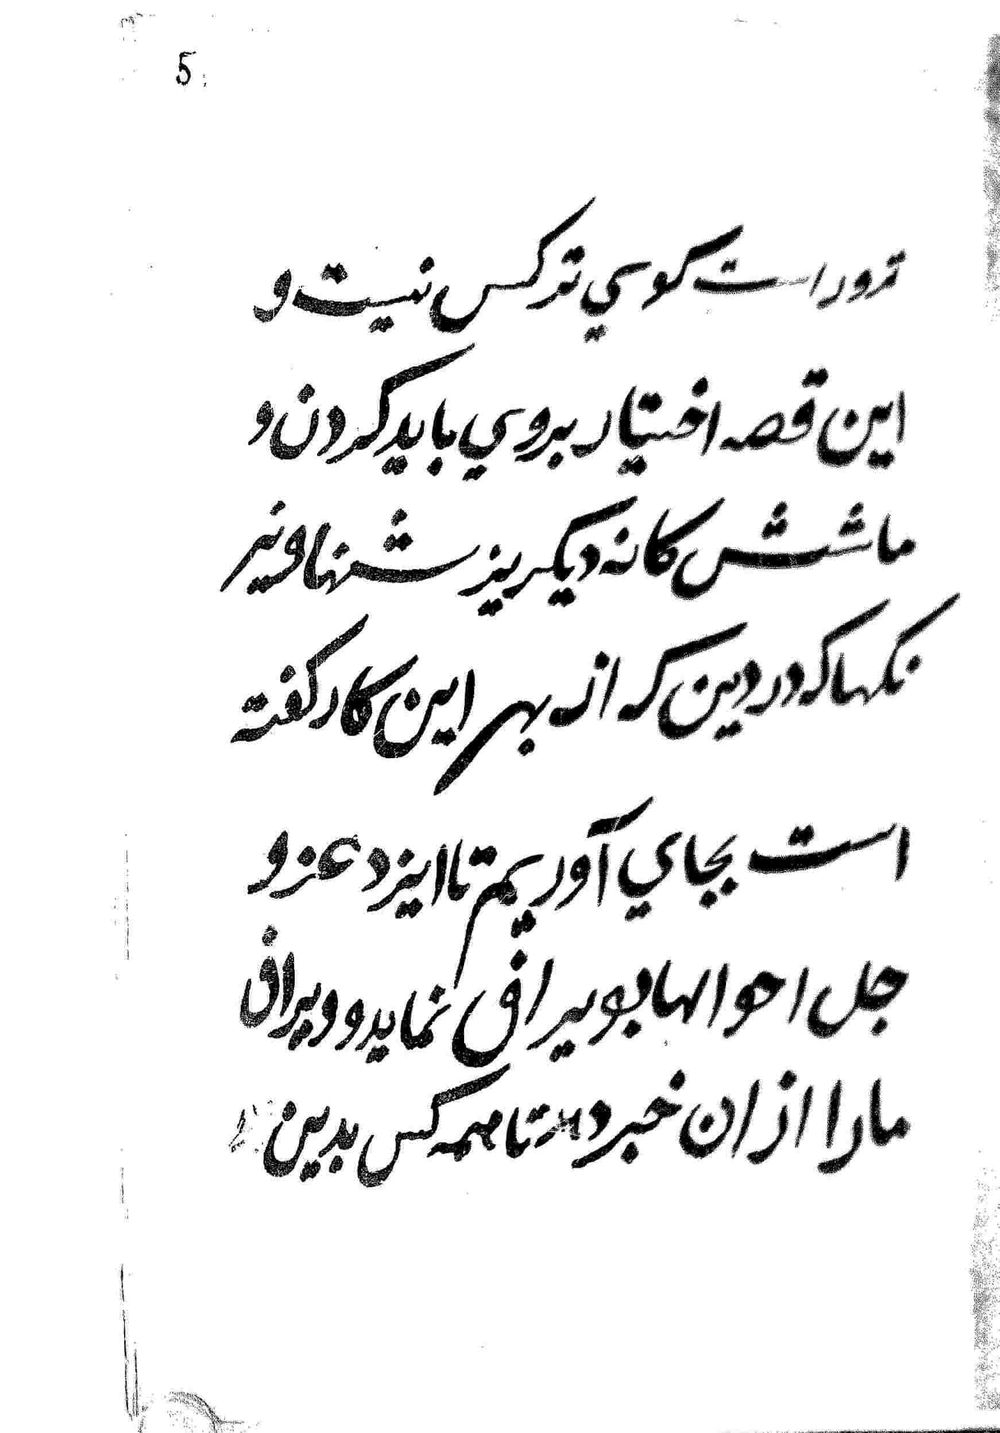 5
تر و راست کوسي تر کس نیست و
این قصه اختیار بروي باید کردن و
ما شش کانه دیکر یزشنها و نیر
نکها که در دین که از بهر این کار کفته
است بجاي آوریم تا ایزد عز و
جل احوالها بویراف نماید و ویراف
مارا از ان خبر دهد تا همه کس بدین